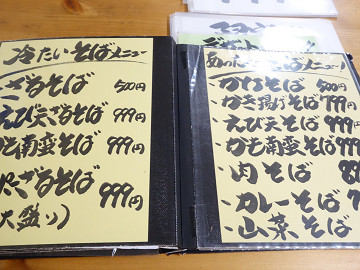 冷たいそばメニュー
ざるそば 500円
えび天ざるそば 999円
かも南蛮そば 999円
ざるそば 999円
大盛り)
あったかそばメニュー
かけそば 500円
・かき揚げそば 799
・えび天そば 999
・かも南蛮そば 999
・肉そば
・カレーそば
・山菜そば